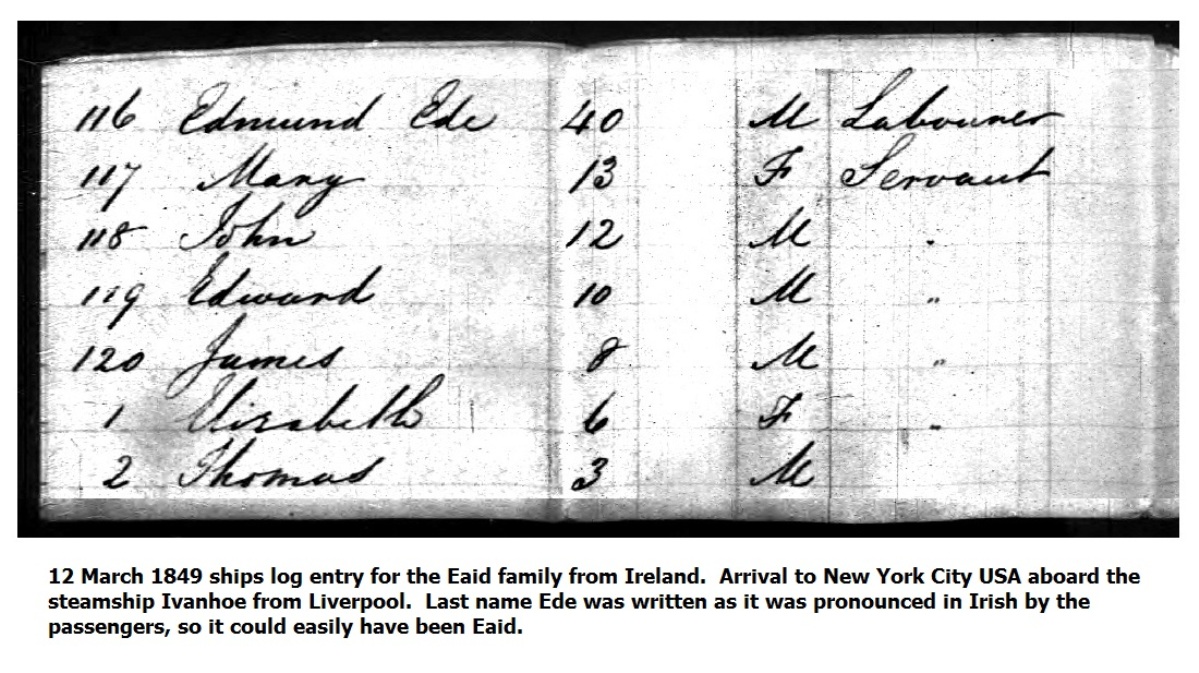 116 Edmund Ede 40 M Labourer
117 Mary 13 F Servant
118 John 12 M "
119 Edward 10 M "
120 James 8 M "
1 Elizabeth 6 F "
2 Thomas 3 M
12 March 1849 ships log entry for the Eaid family from Ireland.  Arrival to New York City USA aboard the
steamship Ivanhoe from Liverpool.  Last name Ede was written as it was pronounced in Irish by the
passengers, so it could easily have been Eaid.